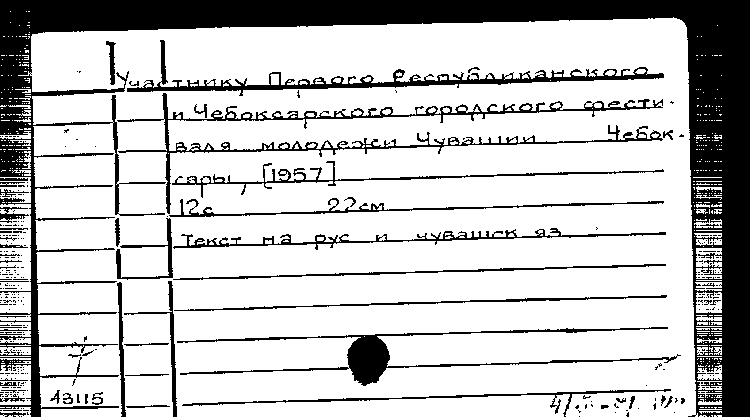 Участнику Первого Республиканского
и Чебоксарского городского фести-
валя молодежи Чувашии Чебок-
сары, [1957]
12с 22см
Текст на рус и чувашск яз
43115